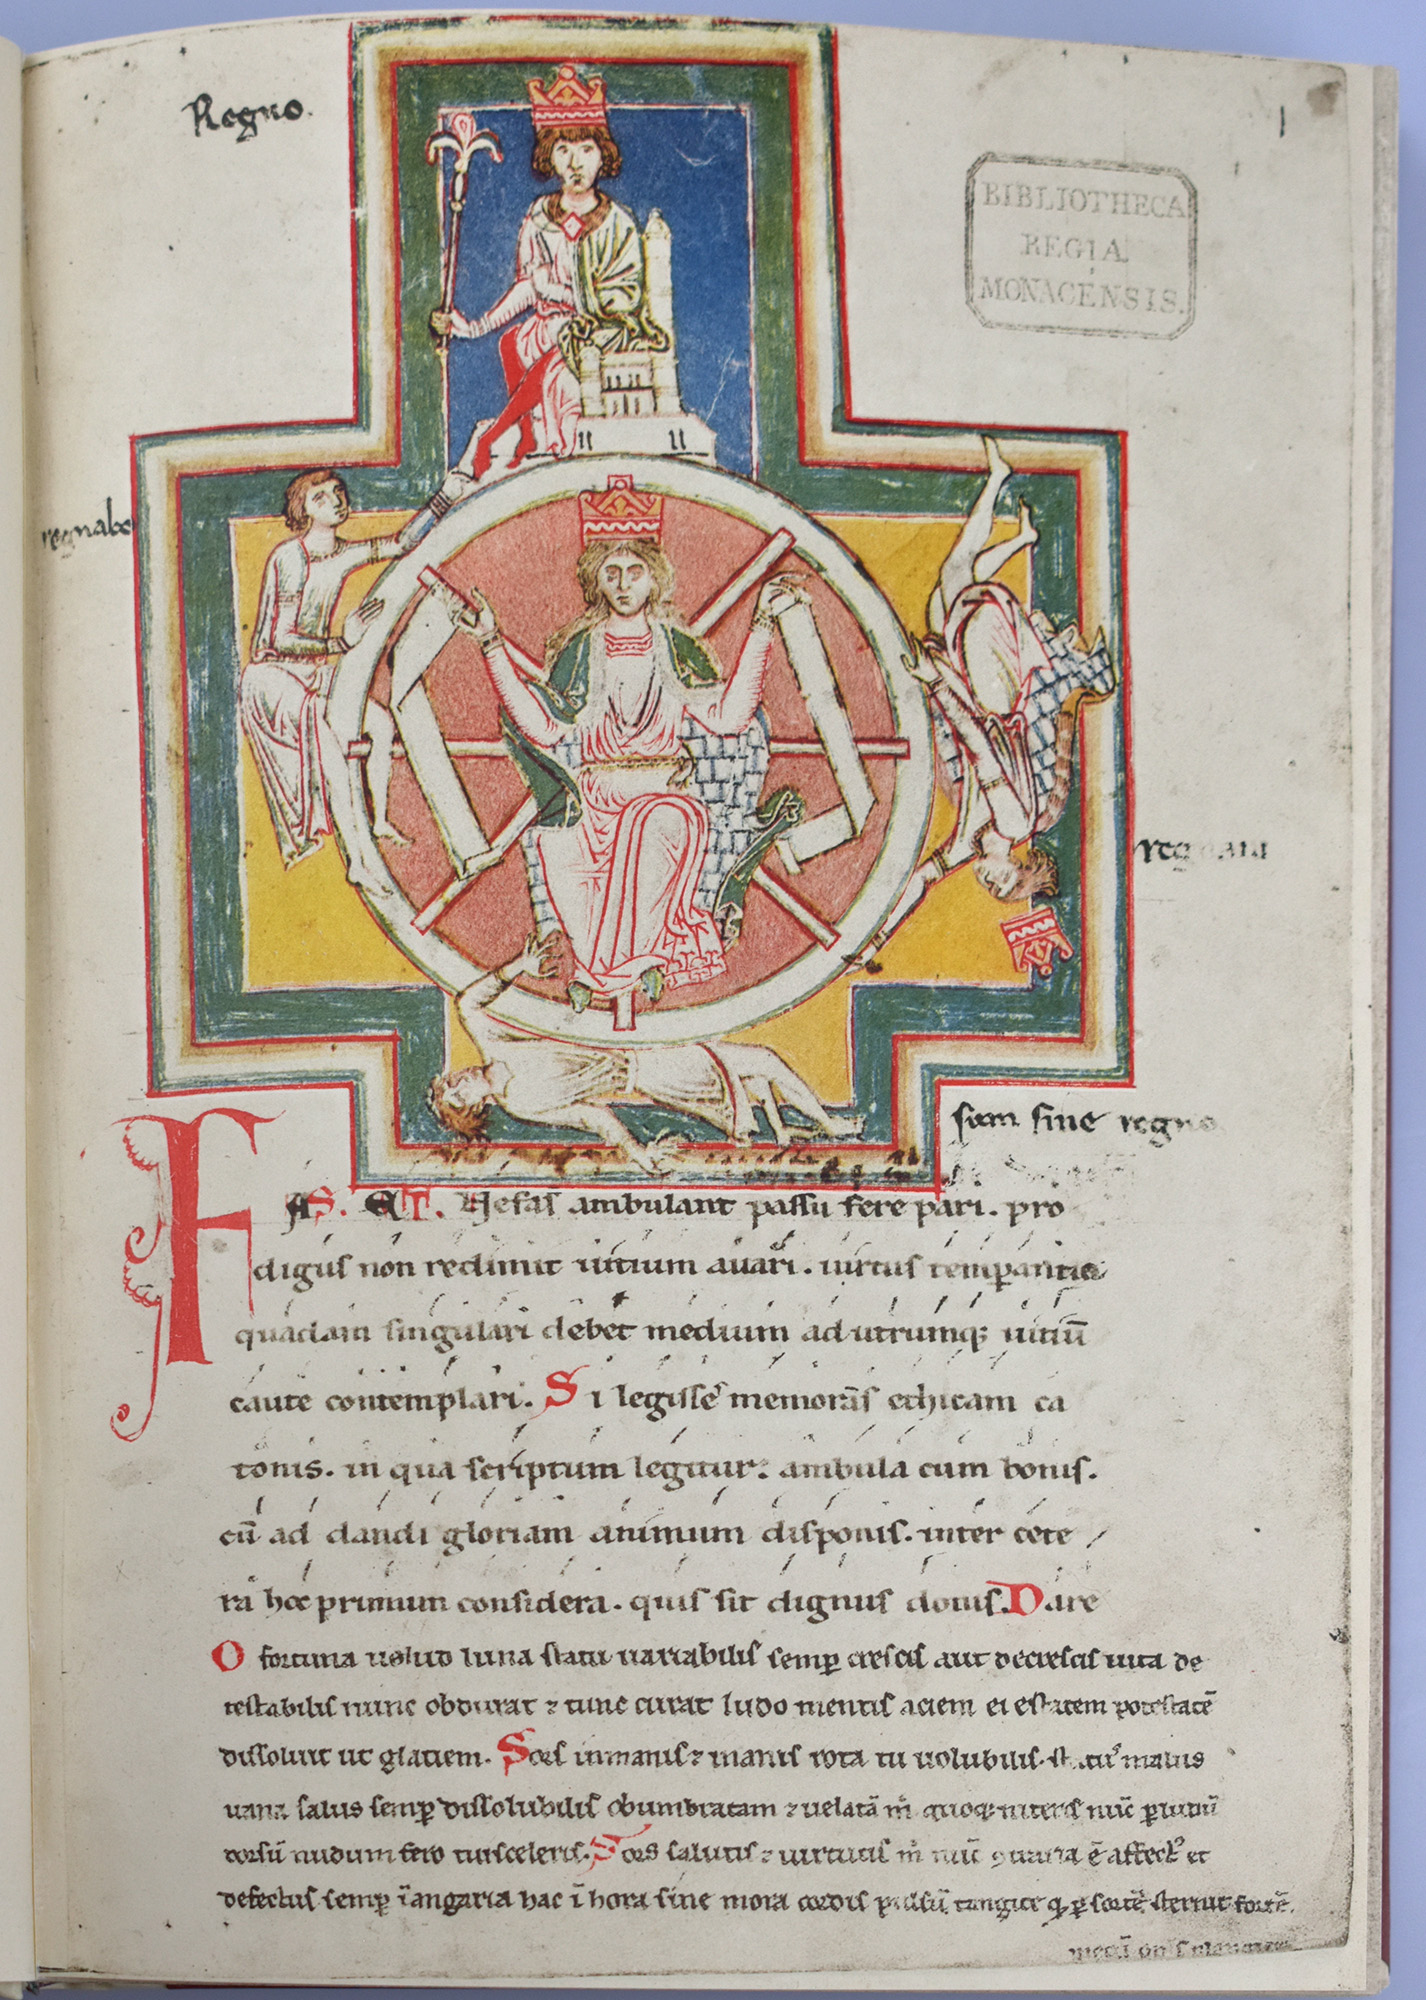 Regno.
1
BIBLIOTHECA
REGIA
MONACENSIS.
regnabo
regnaui
sum sine regno
FAS. ET. Nefas ambulant passu fere pari. pro
digus non redimit uitium auari. uirtus temperantia
quadam singulari debet medium ad utrumq; uitiū
caute contemplari. Si legisse memorās ethicam ca
tonis. in qua scriptum legitur: ambula cum bonis.
cū ad dandi gloriam animum disponis. inter cete
ra hoc primum considera. quis sit dignus donis. Dare
O fortuna uelud luna statu uariabilis semꝑ crescis aut decrescis uita de
testabilis nunc obdurat ⁊ tunc curat ludo mentis aciem egestatem potestatē
dissoluit ut glaciem. Sors inmanis ⁊ inanis rota tu uolubilis status malus
uana salus semꝑ dissolubilis obumbratam ⁊ uelatā m quoq; niteris nūc ꝑ ludū
dorsū nudum fero tui sceleris. Sors salutis ⁊ uirtutis m nūc ꝯtraria ē affect' et
defectus semꝑ ī angaria hac ī hora sine mora cordis pulsū tangite q ꝑ sortē sternit fortē.
mecū